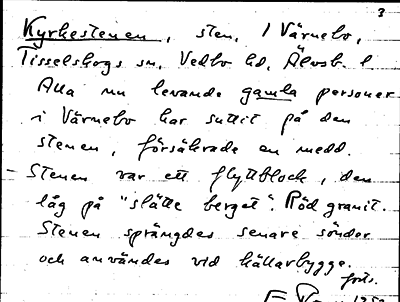 3
Kyrkestenen, sten, i Värnebo,
Tisselskogs sn, Vedbo hd, Älvsb. l.
Alla nu levande gamla personer
i Värnebo har suttit på den
stenen, försäkrade en medd.
Stenen var ett flyttblock, den
låg på "slätte berget". Röd granit.
Stenen sprängdes senare sönder
och användes vid källarbygge.
forts.